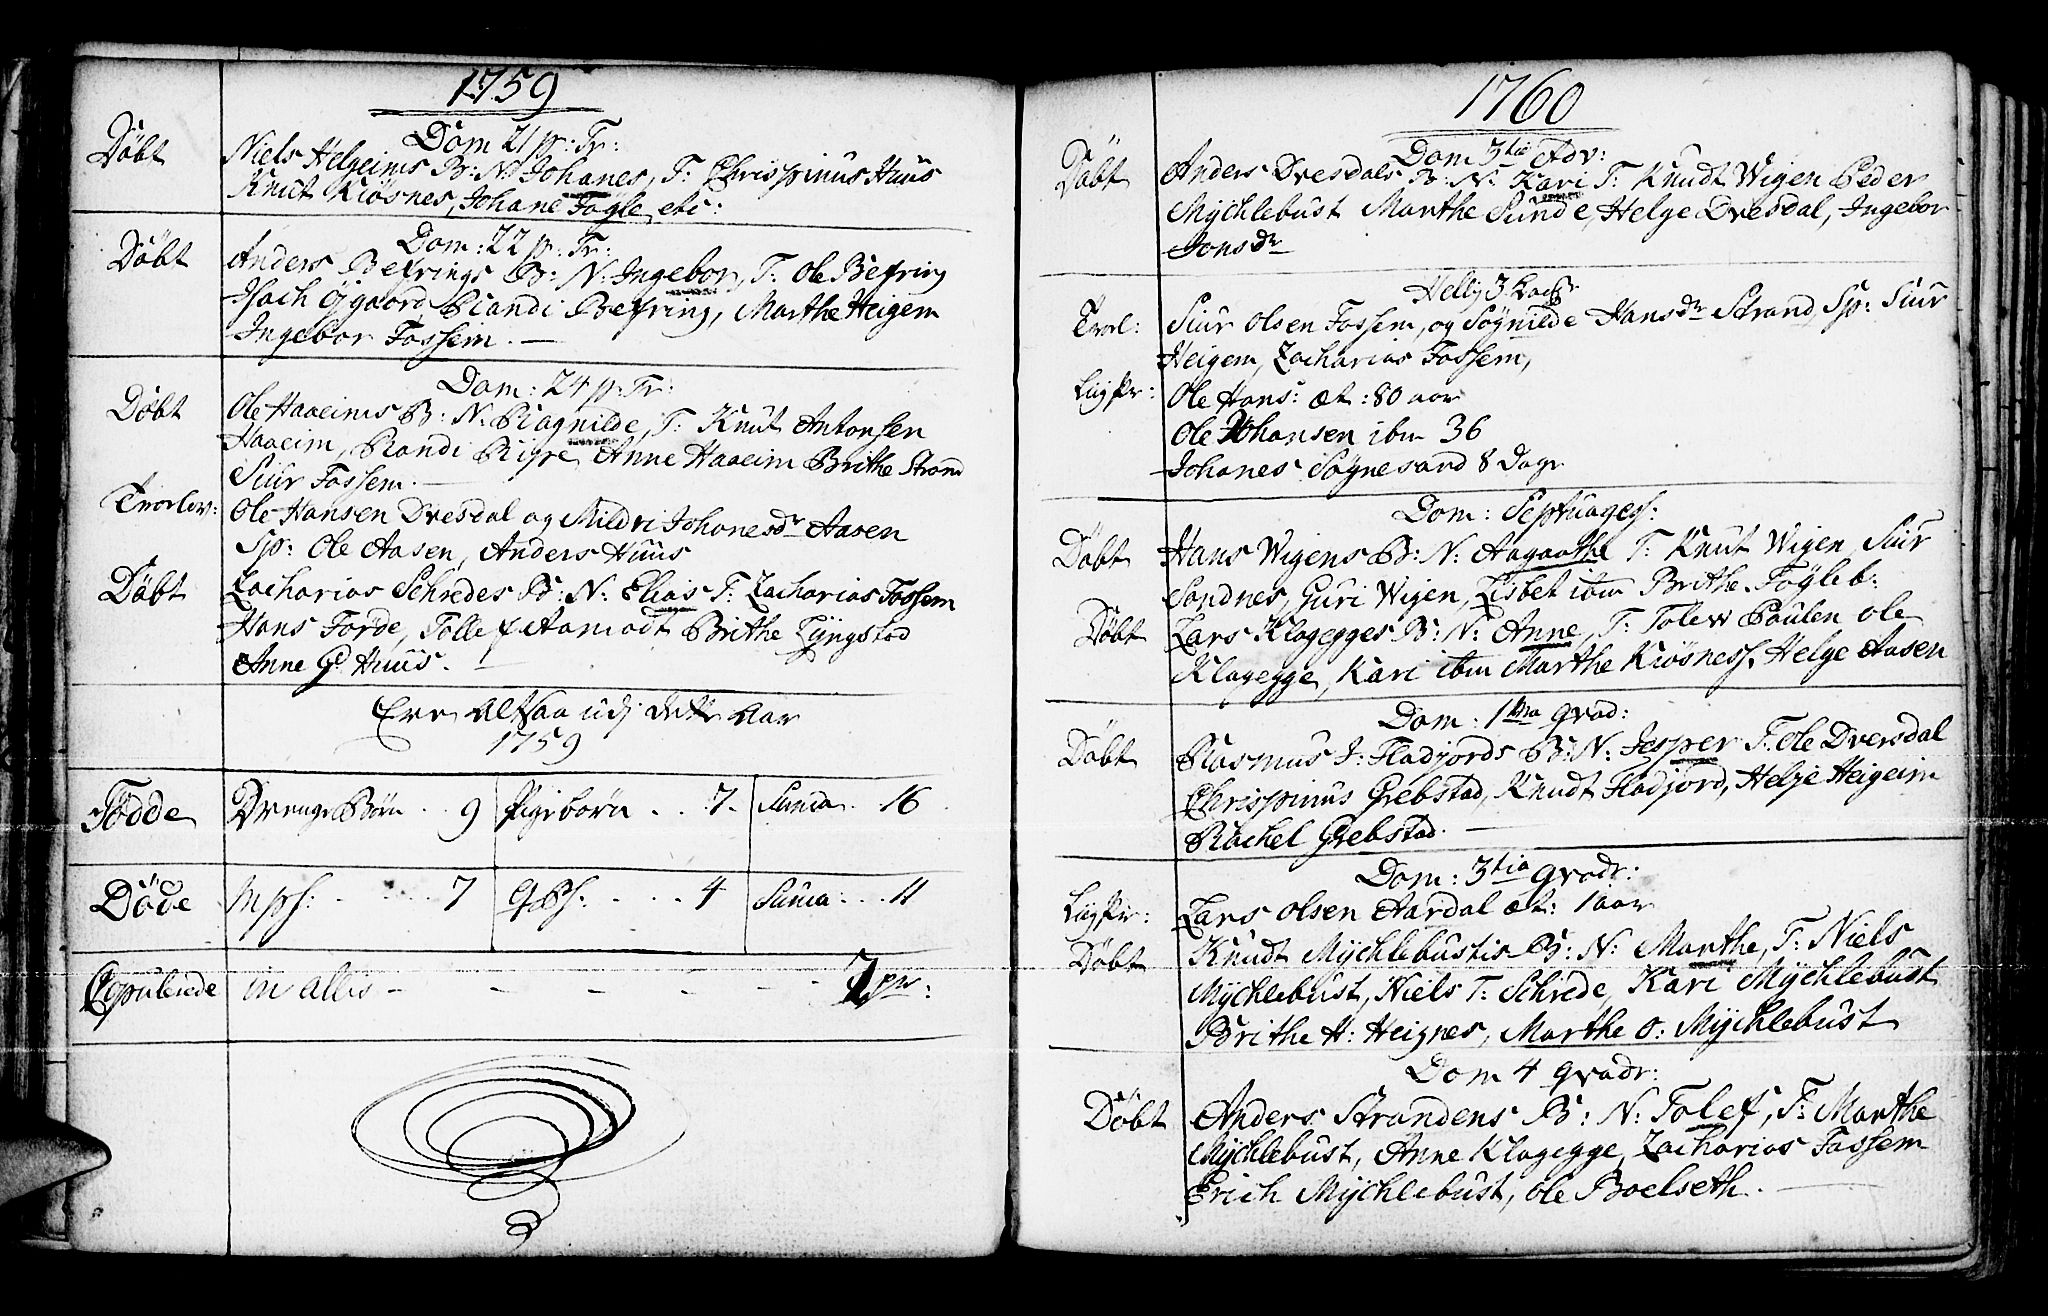 1759
Dom 21 p: Tr:
Döbt Niels Helgeims B: N: Johanes, T: Chrispinus Huus
Knut Kiösnes, Johane Fögle etc:
Dom: 22 p: Tr:
Döbt Anders Befrings B: N: Ingebor, T: Ole Befring
Isach Öjgaord, Randi Befring, Marthe Heigem
Ingebor Fossem. —
Dom: 24 p: Tr:
Döbt Ole Haaeims B: N: Ragnilde, T: Knut Antonsen
Haaeim, Randi Anne Haaeim Brithe Strand
Siur Fossem. —
Trorlov: Ole Hansen Dvesdal og Mildri Johanesdr Aasen
Sp: Ole Aasen, Anders Huus
Döbt Zacharias Schredes B: N: Elias T: Zacharias Fossem
Hans Forde, Tollef Aamodt Brithe Lyngstad
Anne G: Huus. —
Ere altsaa udj dette Aar
1759
Födde Drenge Börn . . 9 Pigebörn . . 7. Suma . . 16
Döde Mps: . . . . 7 QPs. . . . . 4 Suma . . . 11
Copulerede in allis - - - - - - 7 pr:
1760
Dom 3tia Adv:
Döbt Anders Dvesdals B: N: Kari T: Knudt Wigen Peder
Mÿchlebust Marthe Sunde, Helge Dvesdal, Ingebor
Jonsdr
Hellig 3
Trol: Siur Olsen Fossem, og Sögnilde Hansdr Strand, Sp: Siur
Heigem, Zacharias Fossem,
Ligpr: Ole Hans: æt: 80 aar
Ole Johansen ibm 36
Johanes Sögnesand 8 Dage
Dom: Septuages:
Döbt Hans Wigens B: N: Aagaathe T: Knut Wigen, Siur
Sandnes, Guri Wigen, Lisbet ibm Brithe Fögleb:
Döbt Lars Klagegges B: N: Anne, T: Tolew Paulen Ole
Klagegge, Kari ibm Marthe Kiösness, Helge Aasen
Dom: 1ma qvad:
Döbt Rasmus J: Fladjords B: N: Jesper T: Ole Dversdal
Chrispinus Grebstad, Knudt Fladjord, Helge Heigeim
Rachel Grebstad. —
Dom: 3tia qvadr:
Ligpr: Lars Olsen Aardal æt: 1 aar
Döbt Knudt Mÿchlebustis B: N: Marthe, T: Niels
Mÿchlebust, Niels T: Schrede, Kari Mÿchlebust
Brithe H: Heignes, Marthe O: Mÿchlebust
Dom 4 qvadr:
Döbt Anders Strandens B: N: Tolef, T: Marthe
Mÿchlebust, Anne Klagegge, Zacharias Fossem
Erich Mÿchlebust, Ole Boelseth. —